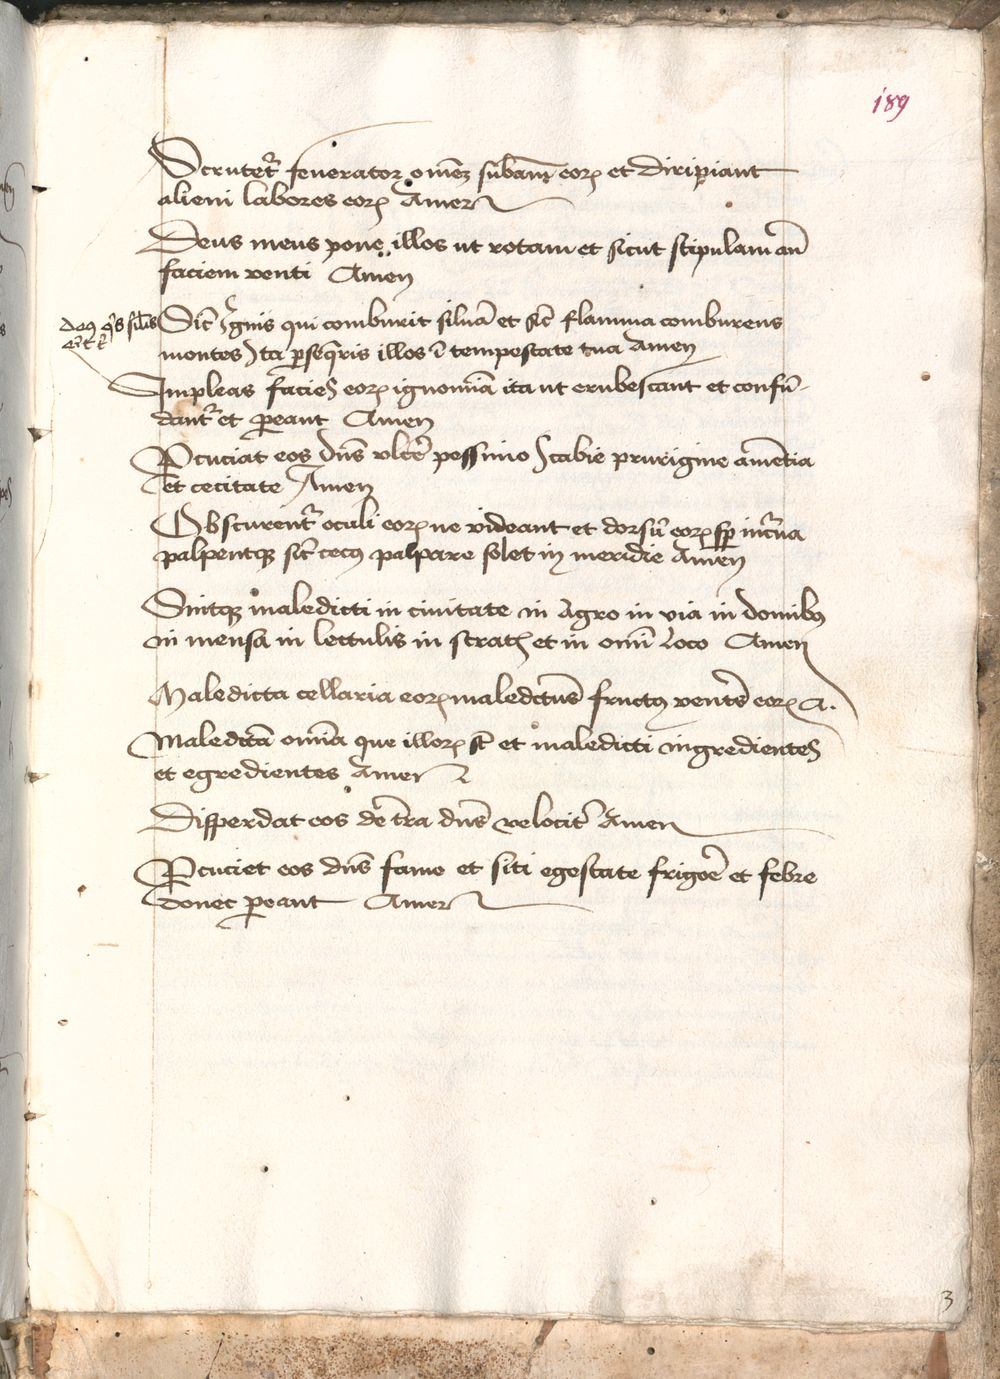 189
Scrutet᷑ fenerator om̄eꝫ sub̄am eoꝝ et diripiant
alieni labores eoꝝ Amen
Deus meus pone illos ut rotam et sicut stipulam an̄
faciem venti Amen
Sic̄ Ignis qui comburit siluā et sic̄ flamma comburens
montes Ita ꝑseq̄ris illos ī tempestate tua Amen
Impleas facies eoꝝ ignomīa ita ut erubescant et confū-
dant᷑ et ꝑeant Amen
Ꝑcuciat eos dn̄s vlc̄e pessimo scabie prurigine amētia
et cecitate Amen
Obscurent᷑ oculi eoꝝ ne videant et dorsū eoꝝ sꝑ incᷓua
palpentqꝫ sic̄ cecꝰ palpare solet in meridie Amen
Sintqꝫ maledicti in ciuitate in Agro in via in domibꝰ
in mensa in lectulis in stratis et in om̄i Loco Amen
Maledicta cellaria eoꝝ maledictus fructꝰ vent̄s eoꝝ A.
Maledicta om̄ia que illoꝝ st̄ et maledicti ingredientes
et egredientes Amen
Disperdat eos de t̄ra dn̄s velocit᷑ Amen
Ꝑcuciet eos dn̄s fame et siti egestate frigoē et febre
donec ꝑeant Amen
3